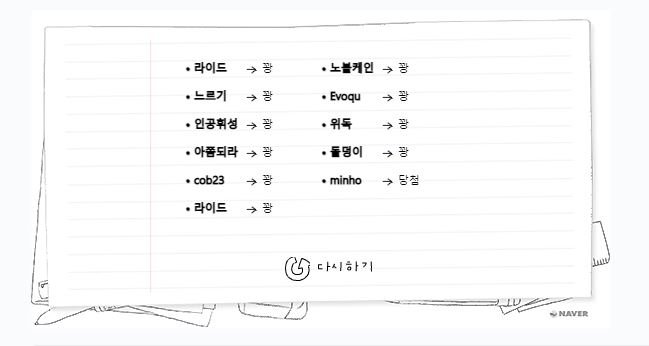 • 라이드 → 꽝
• 느르기 → 꽝
• 인공휘성 → 꽝
• 아쭘되라 → 꽝
• cob23 → 꽝
• 라이드 → 꽝
• 노블케인 → 꽝
• Evoqu → 꽝
• 위독 → 꽝
• 돌멩이 → 꽝
• minho → 당첨
다시하기
NAVER